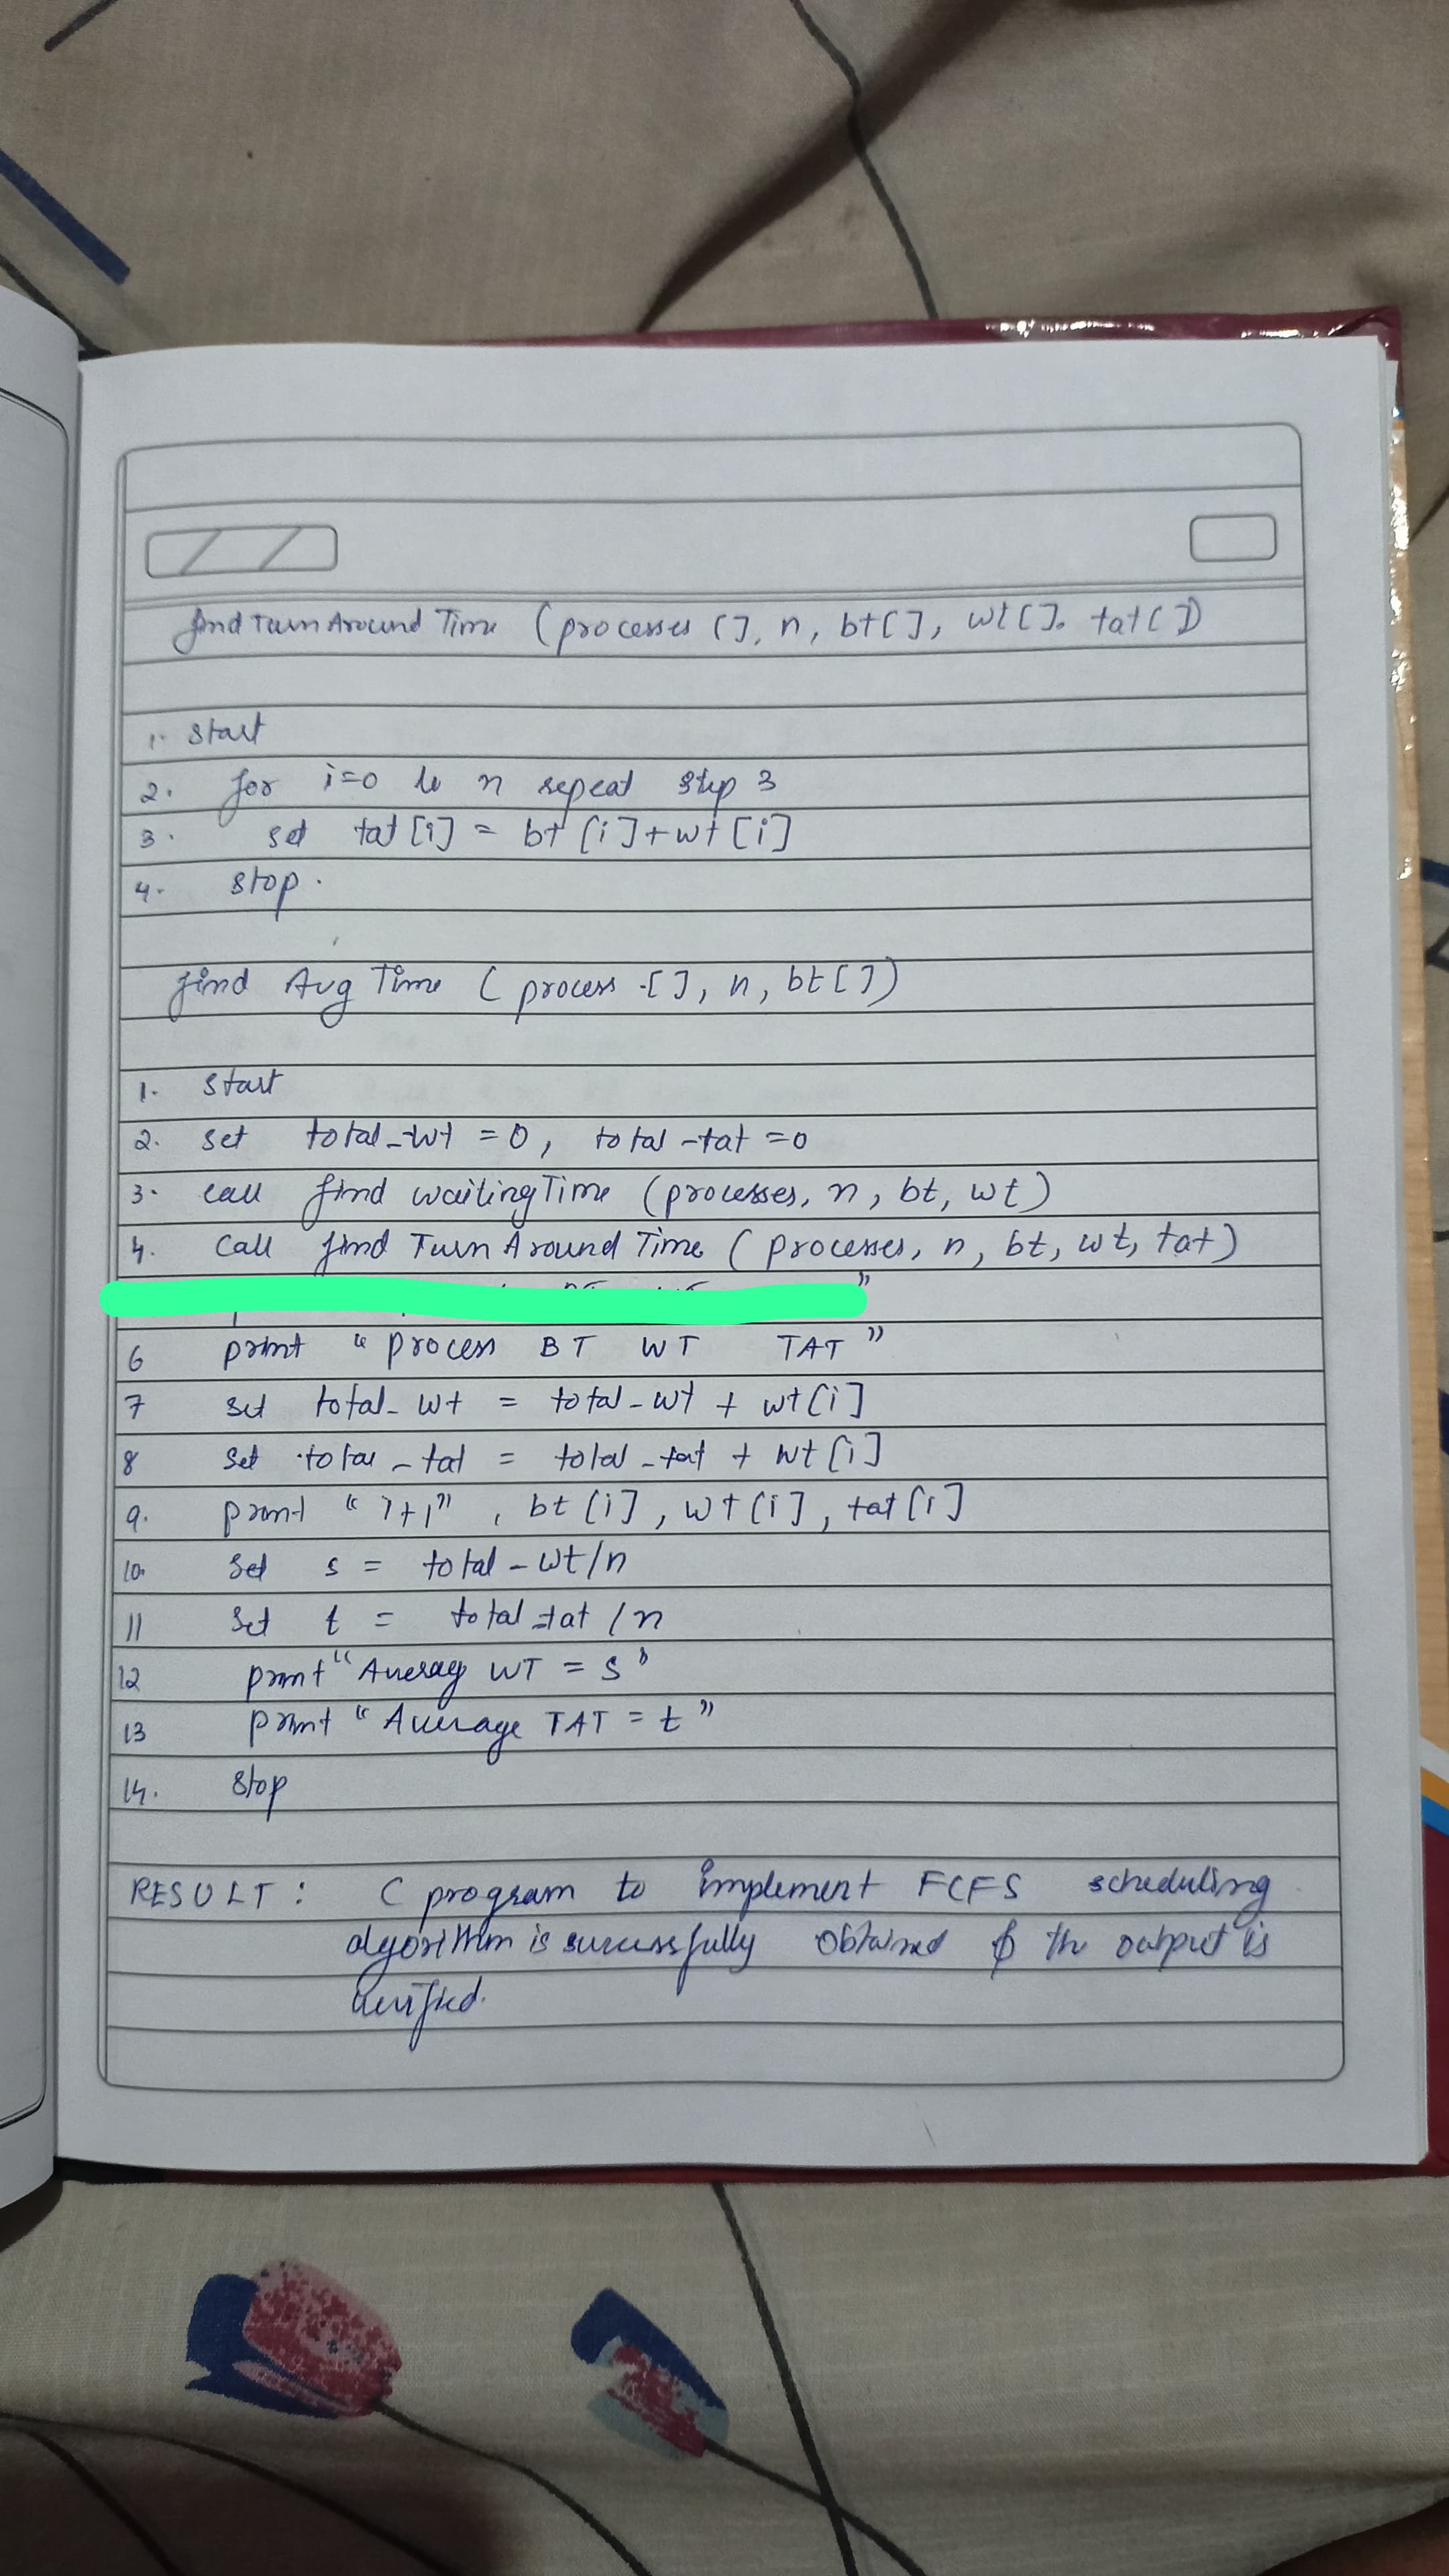 findTurnAroundTime (processes [], n, bt[], wt[]. tat[])
1. start
2. for i=0 to n repeat step 3
3. set tat[i] = bt[i]+wt[i]
4. stop.
find Avg Time (process [], n, bt[])
1. start
2. set total_wt = 0, total-tat =0
3. call find waitingTime (processes, n, bt, wt)
4. call find TurnAroundTime (processes, n, bt, wt, tat)
6 print "process BT WT TAT"
7 set total-wt = total-wt + wt[i]
8 set total-tat = total-tat + wt[i]
9. print "i+1", bt[i], wt[i], tat[i]
10. set s = total-wt/n
11 set t = total-tat /n
12 print "Averag WT = s"
13 print "Average TAT = t"
14. stop
RESULT: C program to implement FCFS scheduling
algorithm is sucessfully obtained & the output is
verified.